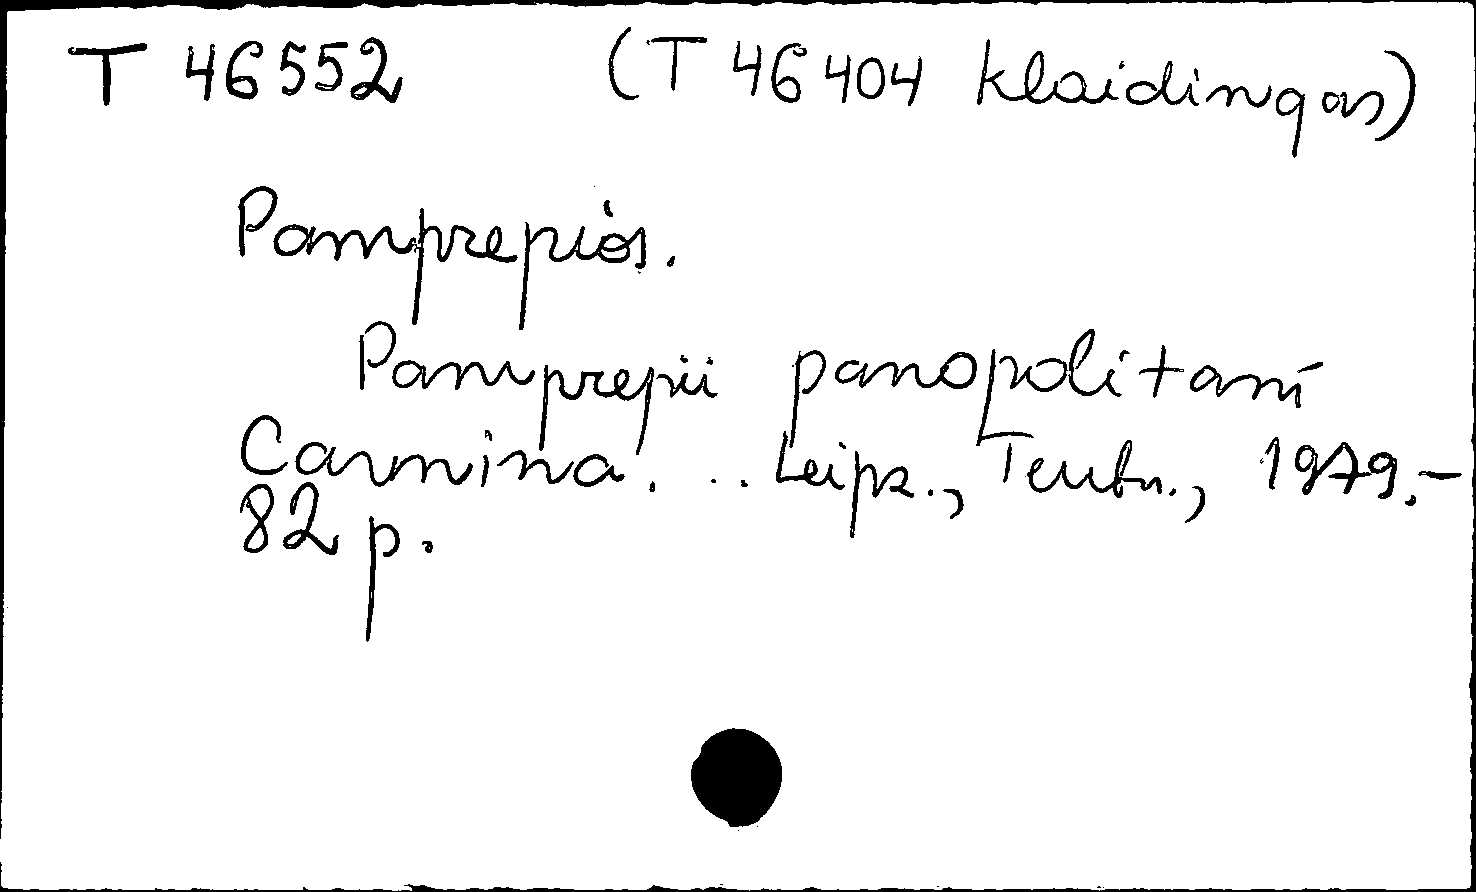 T 46552 (T 46404 klaidingas)
Pamprepios.
Pamprepii panopolitani
Carmina. .. Leipz., Teubn., 1979.-
82 p.